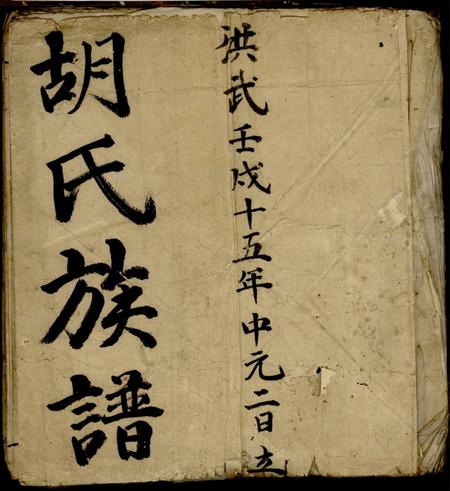 洪武壬戌十五年中元二日立
胡氏族譜